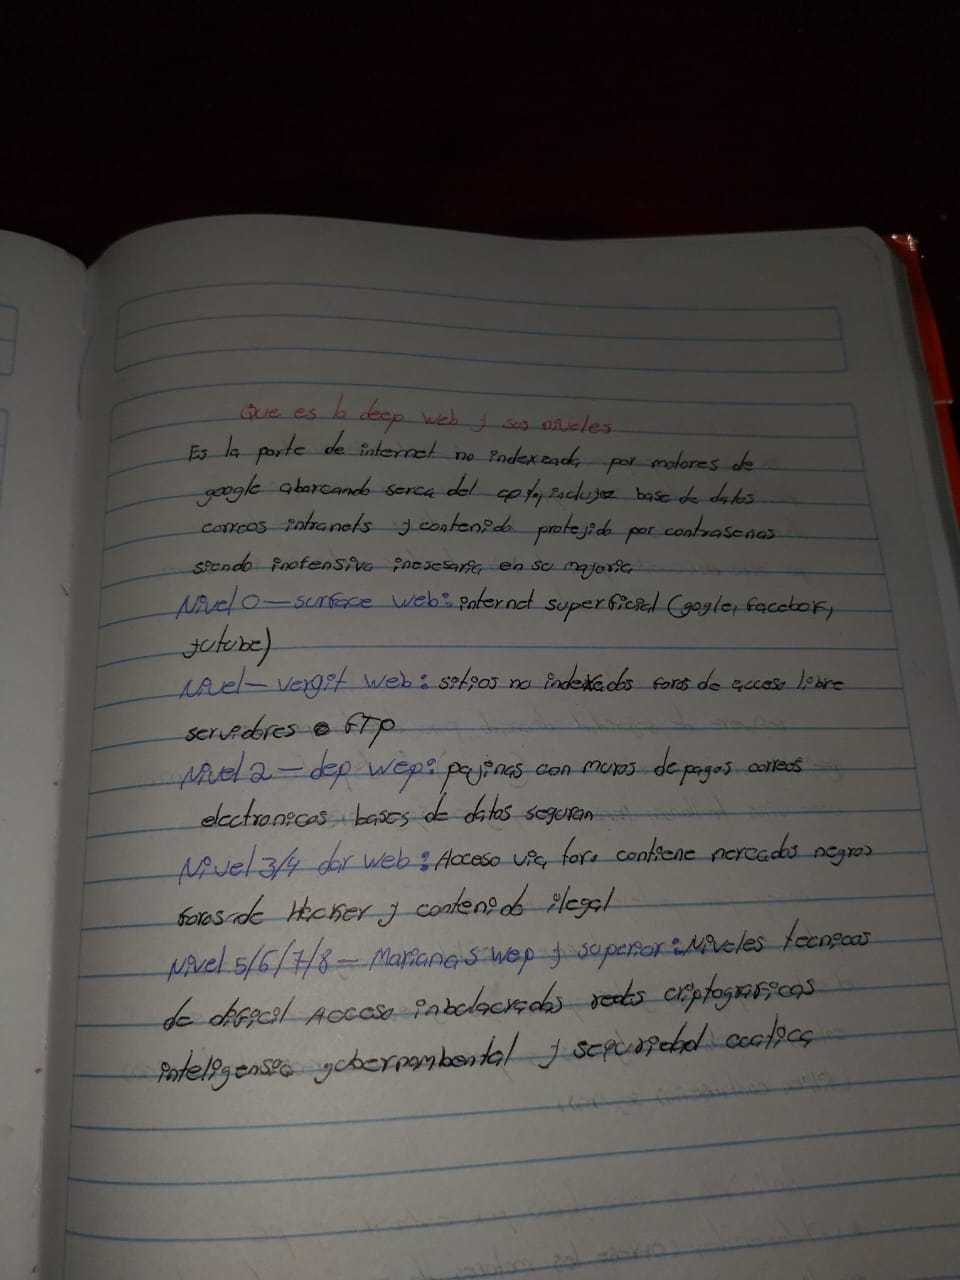 Que es la deep web y sus niveles
Es la parte de internet no indexeada por motores de
google abarcando serca del 90%, incluyez base de datos
correos intranets y contenido protejido por contrasenas
siendo inofensiva inesesaria en su majoria
Nivel 0 — surface web: internet superficial (gogle, facebok,
yutube)
Nivel — vergit web: sitios no indexados foros de acceso libre
servidores FTP
Nivel 2 — dep wep: pajinas con muros de pagos correos
electronicos bases de datos seguran
Nivel 3/4 dar web: Acceso via tor. contiene mercados negros
foros de Hacker y contenido ilegal
Nivel 5/6/7/8 — Marianas wep y superior: Niveles tecnicos
de dificil Acceso redes criptograficas
inteligensia y seguridad